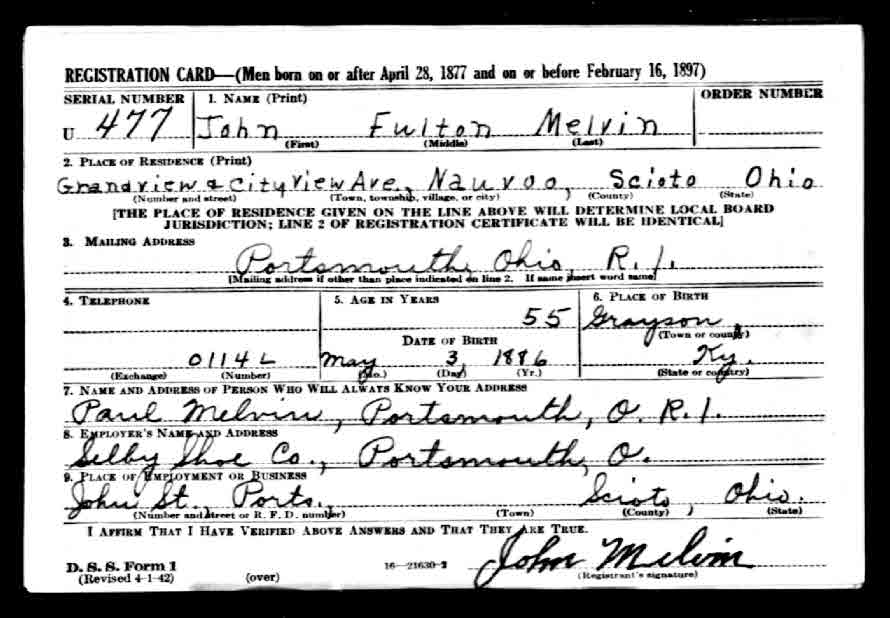 REGISTRATION CARD—(Men born on or after April 28, 1877 and on or before February 16, 1897)
SERIAL NUMBER 1. NAME (Print) ORDER NUMBER
U 477 John Fulton Melvin
(First) (Middle) (Last)
2. PLACE OF RESIDENCE (Print)
Grandview & City View Ave., Nauvoo, Scioto Ohio
(Number and street) (Town, township, village, or city) (County) (State)
[THE PLACE OF RESIDENCE GIVEN ON THE LINE ABOVE WILL DETERMINE LOCAL BOARD
JURISDICTION; LINE 2 OF REGISTRATION CERTIFICATE WILL BE IDENTICAL]
3. MAILING ADDRESS
Portsmouth, Ohio R. 1.
[Mailing address if other than place indicated on line 2. If same insert word same]
4. TELEPHONE 5. AGE IN YEARS 6. PLACE OF BIRTH
55 Grayson,
(Town or county)
DATE OF BIRTH
0114 L May 3, 1886 Ky.
(Exchange) (Number) (Mo.) (Day) (Yr.) (State or country)
7. NAME AND ADDRESS OF PERSON WHO WILL ALWAYS KNOW YOUR ADDRESS
Paul Melvin, Portsmouth, O. R. 1.
8. EMPLOYER'S NAME AND ADDRESS
Selby Shoe Co., Portsmouth, O.
9. PLACE OF EMPLOYMENT OR BUSINESS
John St., Ports., Scioto, Ohio.
(Number and street or R. F. D. number) (Town) (County) (State)
I AFFIRM THAT I HAVE VERIFIED ABOVE ANSWERS AND THAT THEY ARE TRUE.
John Melvin
D. S. S. Form 1
(Revised 4-1-42) (over) 16—21630-2 (Registrant's signature)